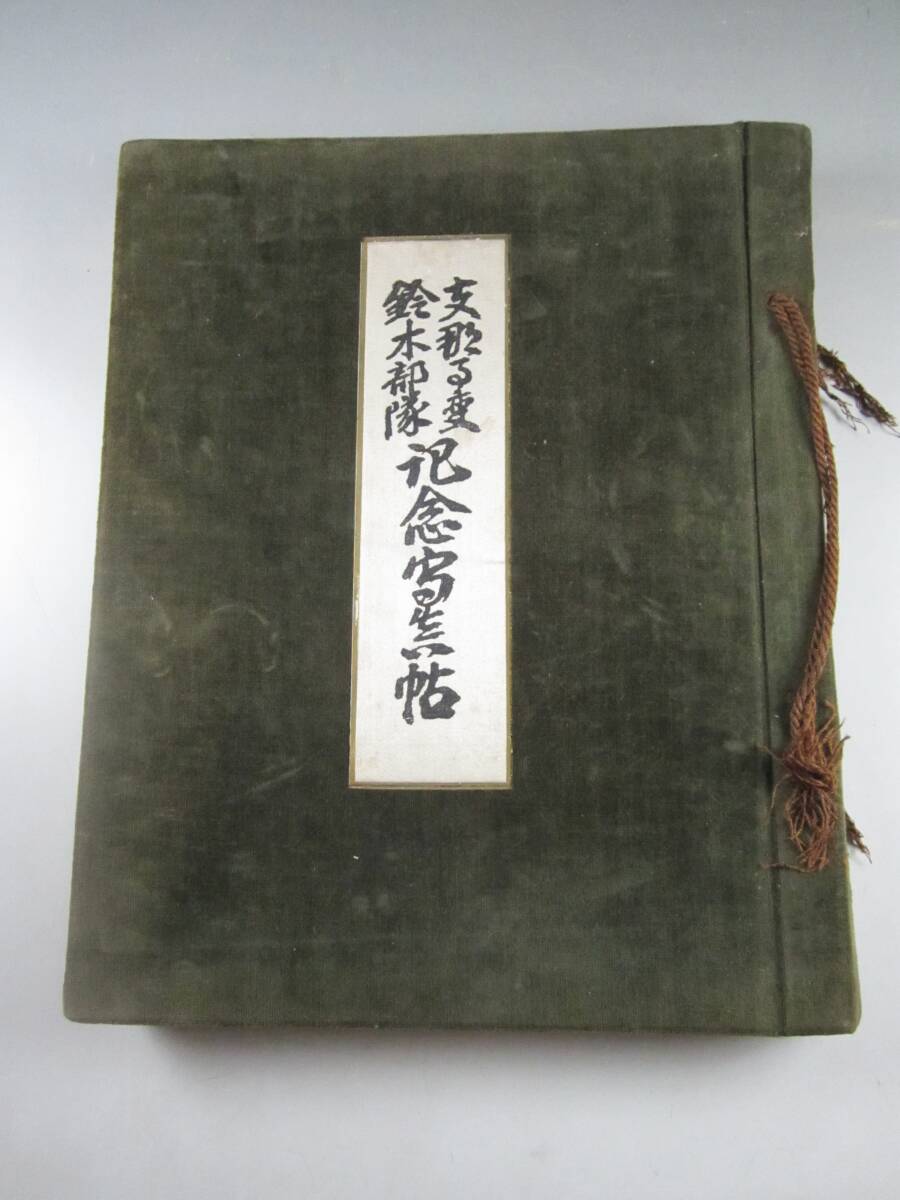 支那事变
鈴木部隊
記念写真帖